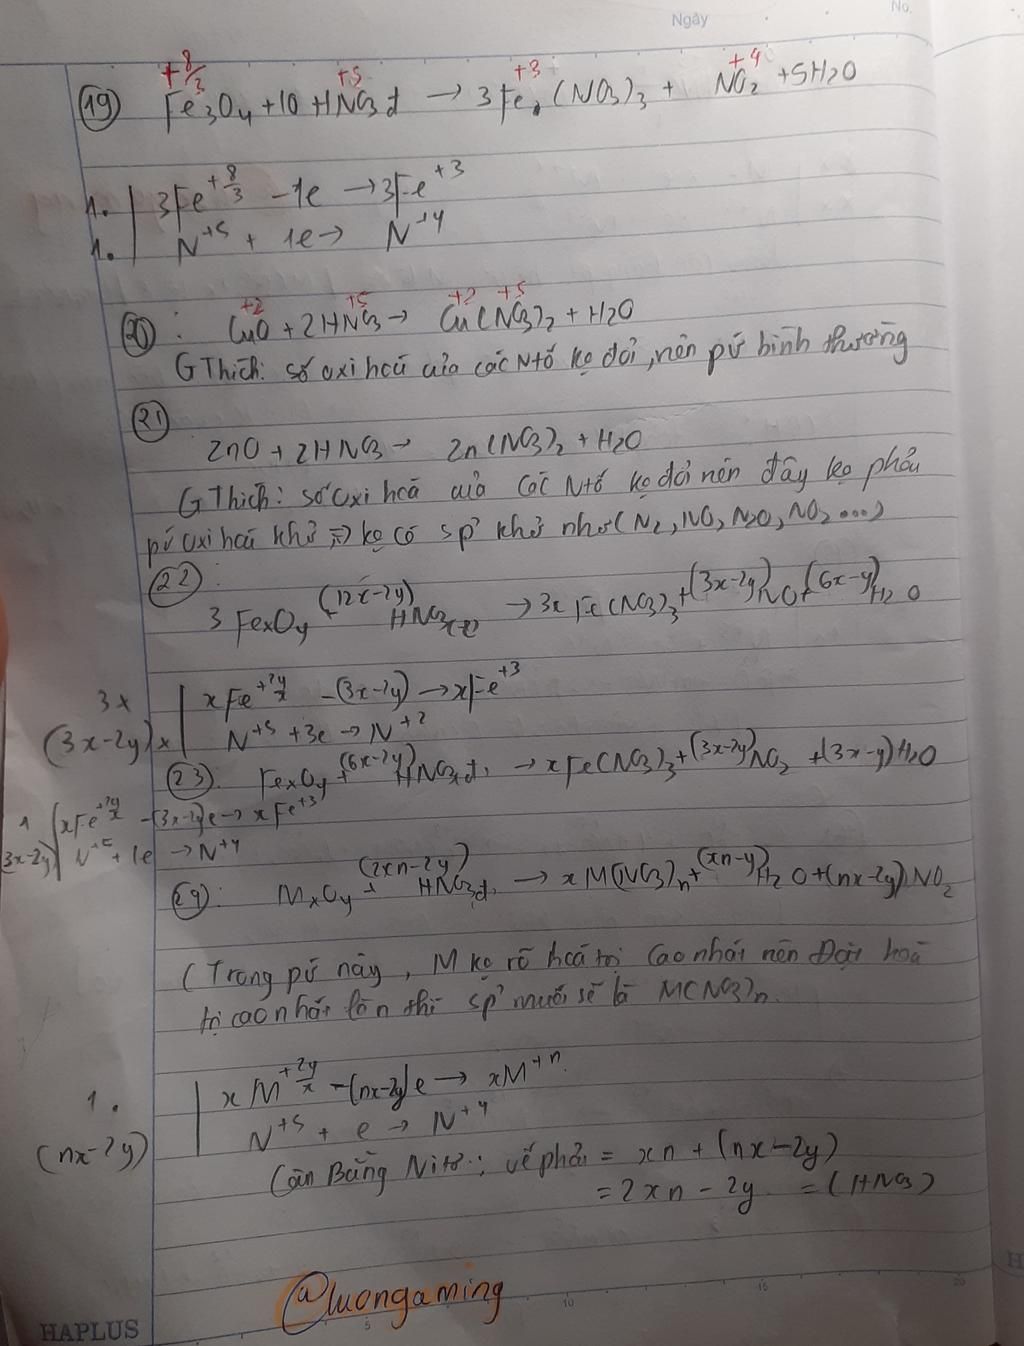 Ngày
No.
+8/3 +5 +3 +4
(19) Fe3O4 + 10 HNO3đ → 3Fe(NO3)3 + NO2 + 5H2O
1. | 3Fe^{+8/3} - 1e → 3Fe^{+3}
1. | N^{+5} + 1e → N^{+4}
+2 +5 +2 +5
(20): CuO + 2HNO3 → Cu(NO3)2 + H2O
GThích: số oxi hoá của các Ntố ko đổi, nên pứ bình thường
(21)
ZnO + 2HNO3 → Zn(NO3)2 + H2O
GThích: số oxi hoá của các Ntố ko đổi nên đây ko phải
pứ oxi hoá khử => ko có sp' khử như (N2, NO, N2O, NO2...)
(22):
3 FexOy + (12x-2y) HNO3(l) → 3x Fe(NO3)3 + (3x-2y)NO + (6x-y)H2O
3x | xFe^{+2y/x} - (3x-2y) → xFe^{+3}
(3x-2y)x | N^{+5} + 3e → N^{+2}
(23): FexOy + (6x-2y)HNO3đ → xFe(NO3)3 + (3x-2y)NO2 + (3x-y)H2O
1 | xFe^{+2y/x} - (3x-2y)e → xFe^{+3}
(3x-2y) | N^{+5} + 1e → N^{+4}
(24): MxOy + (2xn-2y) HNO3đ → xM(NO3)n + (xn-y)H2O + (nx-2y)NO2
(Trong pứ này, M ko rõ hoá trị cao nhất nên Đặt hoá
trị cao nhất là n thì sp' muối sẽ là M(NO3)n.
1. | xM^{+2y/x} - (nx-2y)e → xM^{+n}
(nx-2y) | N^{+5} + e → N^{+4}
Cân Bằng Nitơ: vế phải = xn + (nx-2y)
= 2xn - 2y = (HNO3)
@luongaming
5 10 15 20
HAPLUS
H